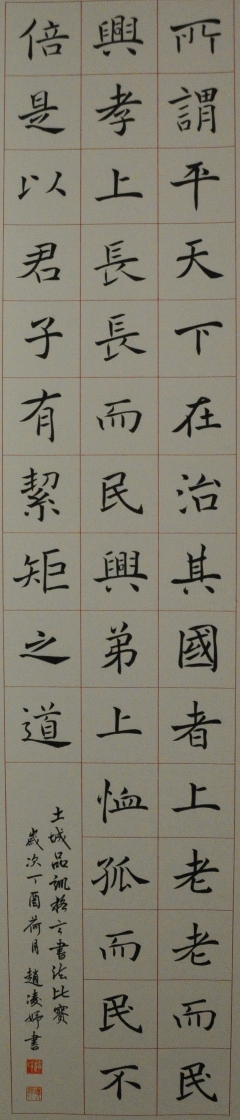 所謂平天下在治其國者上老老而民
興孝上長長而民興弟上恤孤而民不
倍是以君子有絜矩之道
土城品訓格言書法比賽
歲次丁酉荷月趙凌妤書